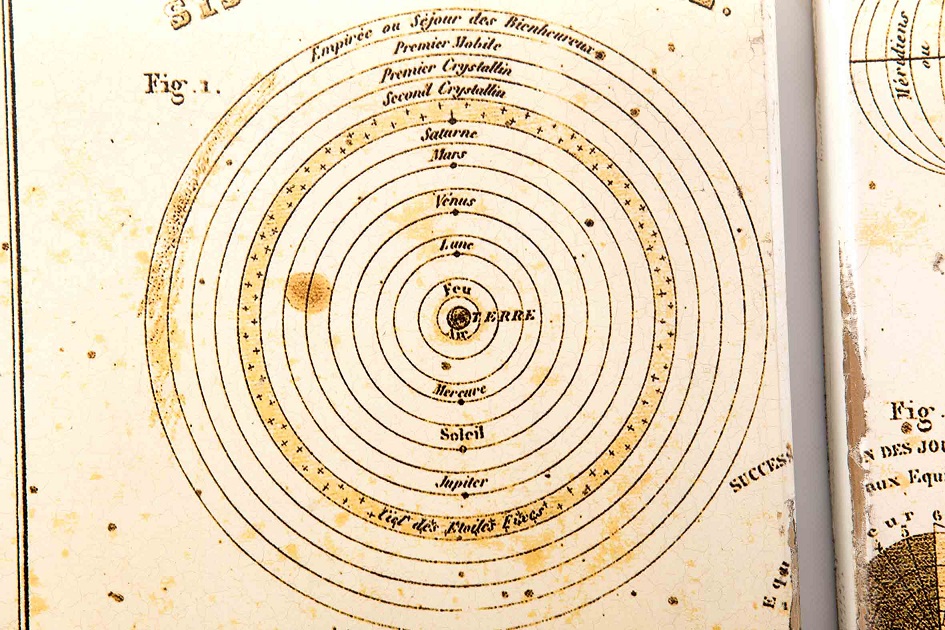 Fig. 1.
Empirée ou Séjour des Bienheureux
Premier Mobile
Premier Crystallin
Second Crystallin
Saturne
Mars
Vénus
Lune
Feu
TERRE
Air
Mercure
Soleil
Jupiter
Ciel des Etoiles Fixes
SUCCES
Equ
Méridiens
ou
Fig.
N DES JOU
aux Equ
eur e